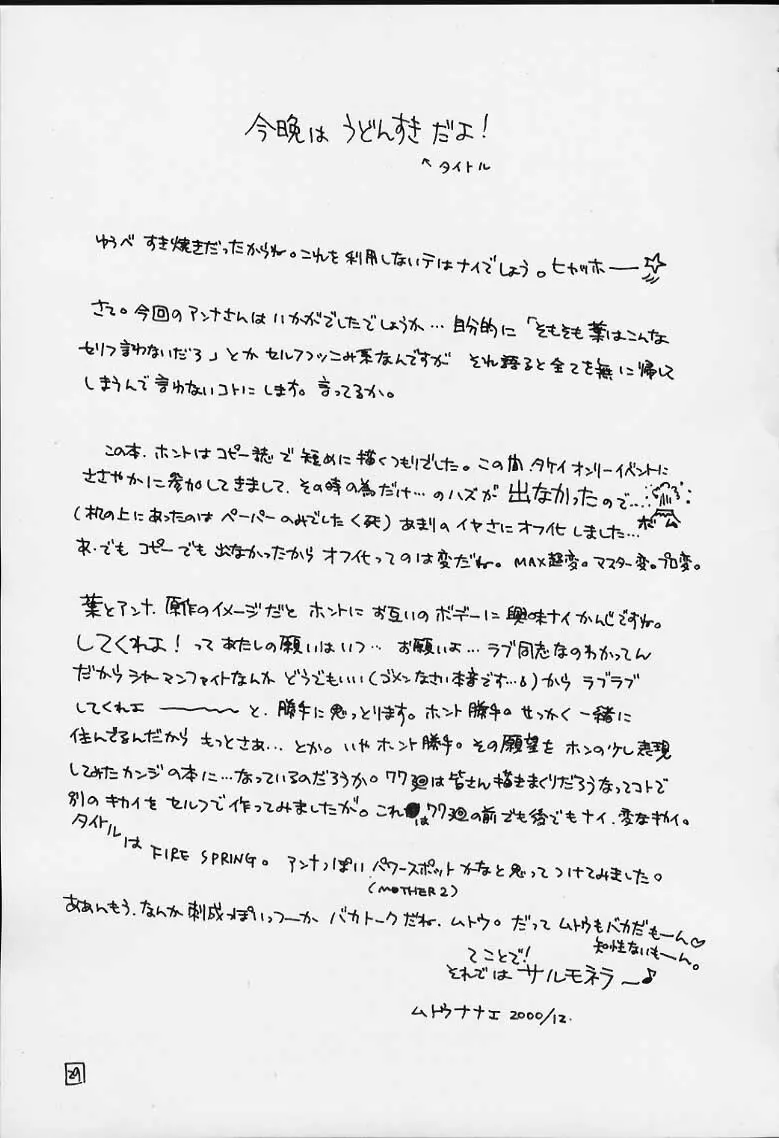 今晩は うどんすき だよ!
↖タイトル
ゆうべ すき焼きだったからね。これを利用しないテはナイでしょう。ヒャッホー――☆
さて。今回のアンナさんはいかがでしたでしょうか… 自分的に「そもそも葉はこんな
セリフ言わないだろ」とか セルフツッこみ系なんですが それ語ると全てを無に帰して
しまうんで言わないコトにします。言ってるか。
この本、ホントはコピー誌で短めに描くつもりでした。この間、タケイオンリーイベントに
ささやかに参加してきまして、その時の為だけ…のハズが 出なかったので…
ボム
(机の上にあったのは ペーパーのみでした<死) あまりのイヤさにオフ化しました…
あ、でも コピーでも出なかったから オフ化ってのは変だね。MAX超変。マスター変。プロ変。
葉とアンナ、原作のイメージだと ホントにお互いのボデーに興味ナイかんじですね。
してくれよ! って あたしの願いはいつ… お願いよ… ラブ同志なのわかってん
だから シャーマンファイトなんか どうでもいい(ゴメンなさい本音です…)から ラブラブ
してくれェ ――――〜 と、勝手に思っとります。ホント勝手。せっかく一緒に
住んでるんだから もっとさぁ… とか。いやホント勝手。その願望を ホンの少し表現
してみたカンジの本に…なっているのだろうか。77廻は皆さん描きまくりだろうなってコトで
別のキカイをセルフで作ってみましたが。これは77廻の前でも後でもナイ、変なキカイ。
タイトルは FIRE SPRING。 アンナっぽい パワースポットかなと思ってつけてみました。
(MOTHER2)
ああんもう、なんか 刺成っぽいっつーか バカトークだね、ムトウ。だって ムトウもバカだもーん♡
知性ないもーん。
てことで!
それでは サルモネラ〜♪
ムトウナナエ 2000/12.
29